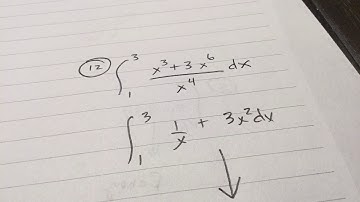 (12) ∫₁³ (x³ + 3x⁶)/x⁴ dx
∫₁³ 1/x + 3x² dx